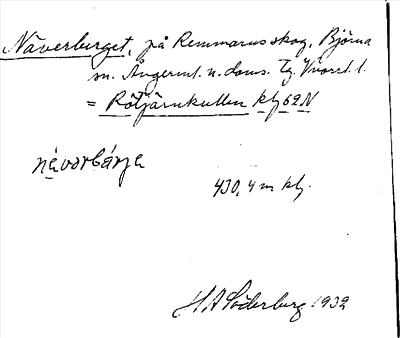 Näverberget, på Remmarns skog, Björna
sn. Ångerml. n. doms. Tg.
= Rötjärnkullen kbl 62N
nä̀vərbárja
430,4 m kbl.
H A Söderberg 1932